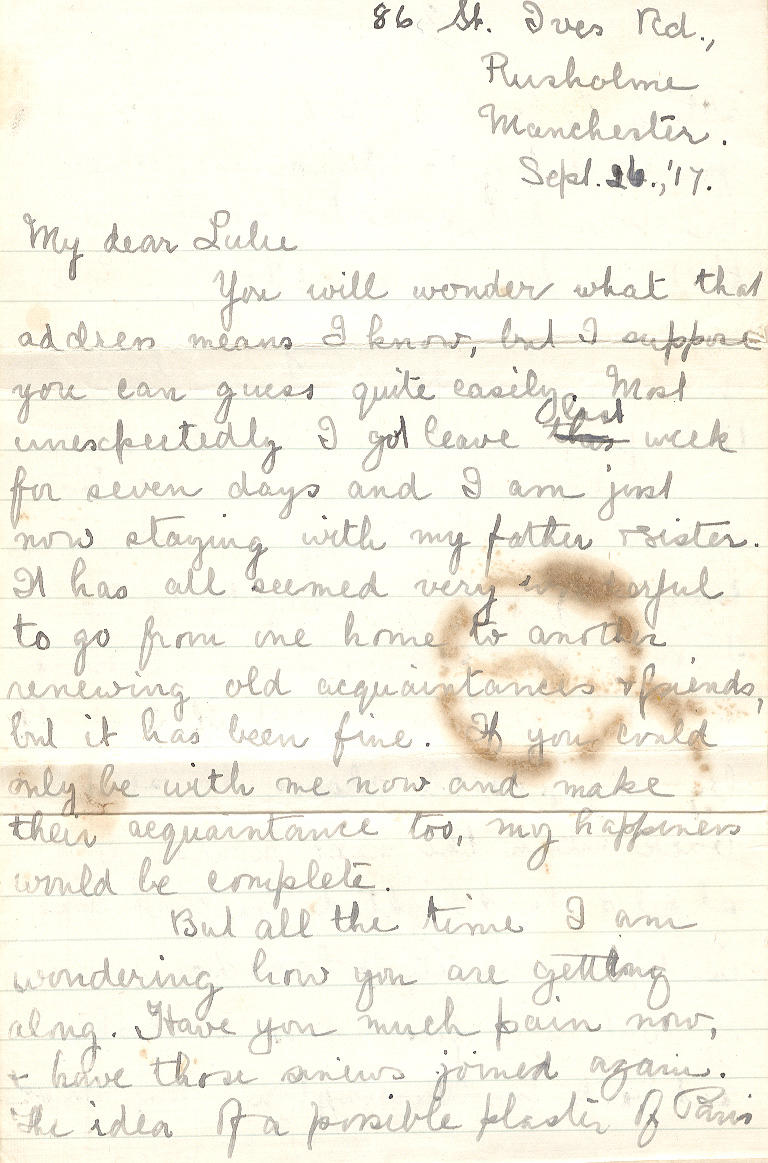 86 St. Ives Rd.,
Rusholme
Manchester.
Sept. 26.,'17.
My dear Lulu
You will wonder what that
address means I know, but I suppose
you can guess quite easily. Most
unexpectedly I got leave this last week
for seven days and I am just
now staying with my father & sister.
It has all seemed very wonderful
to go from one home to another
renewing old acquaintances & friends,
but it has been fine. If you could
only be with me now and make
their acquaintance too, my happiness
would be complete.
But all the time I am
wondering how you are getting
along. Have you much pain now,
& have those sinews joined again.
The idea of a possible plaster of Paris